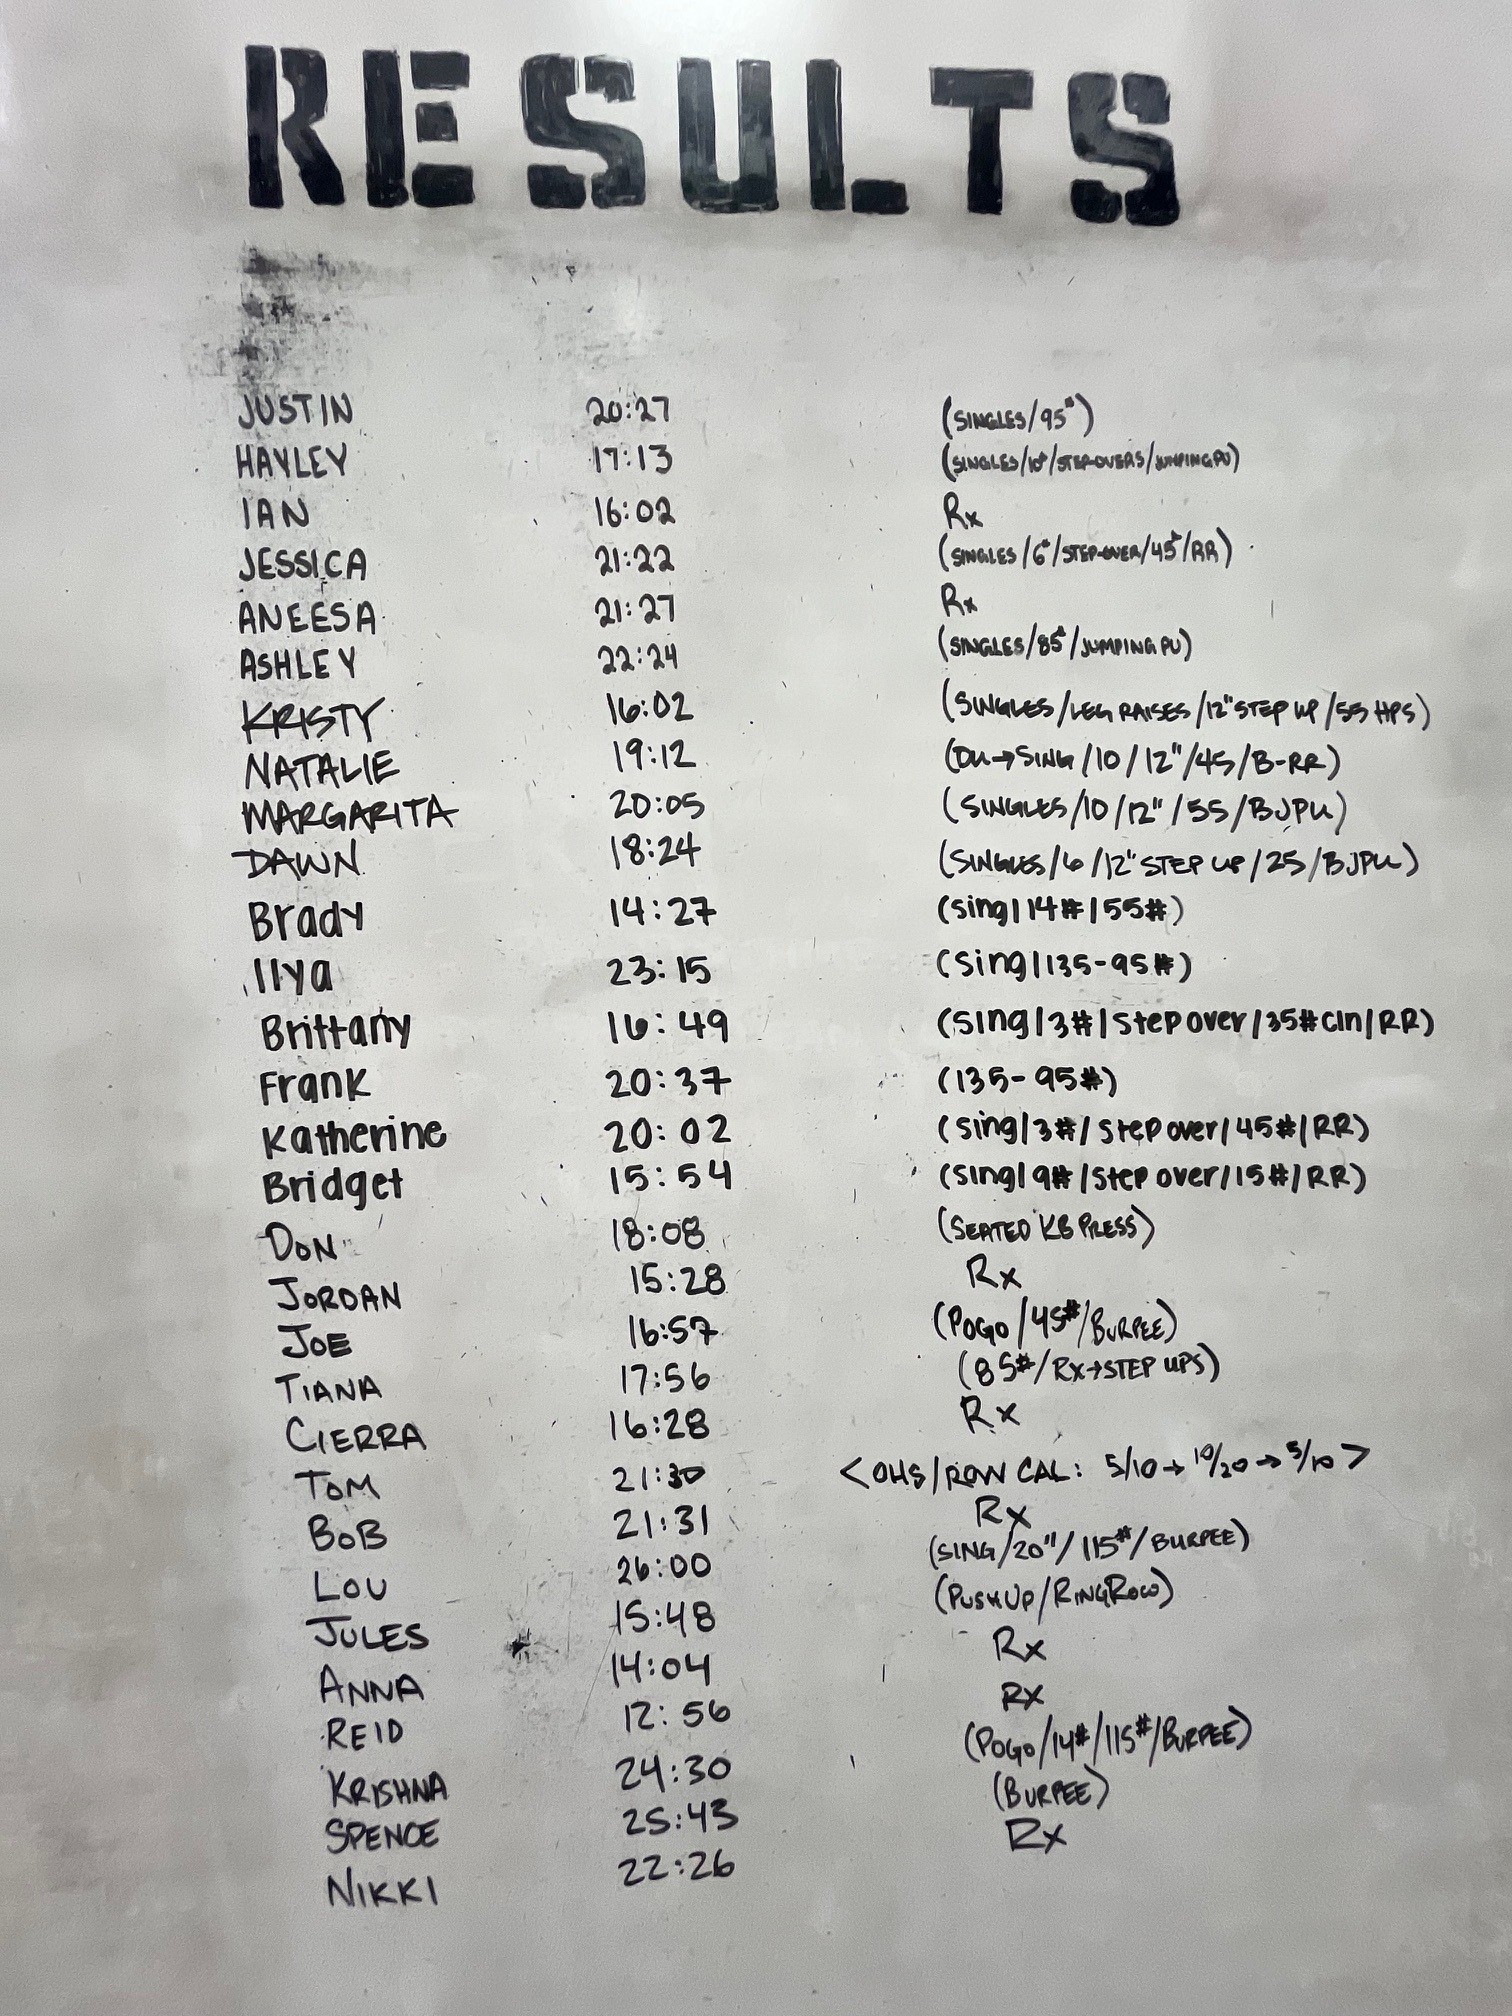 RESULTS
JUSTIN 20:27 (SINGLES/95#)
HAYLEY 17:13 (SINGLES/10#/STEP-OVERS/JUMPING PU)
IAN 16:02 Rx
JESSICA 21:22 (SINGLES/6#/STEP-OVER/45#/RR)
ANEESA 21:27 Rx
ASHLEY 22:24 (SINGLES/85#/JUMPING PU)
KRISTY 16:02 (SINGLES/LEG RAISES/12" STEP UP/55 HPS)
NATALIE 19:12 (DU→SING/10/12"/45/B-RR)
MARGARITA 20:05 (SINGLES/10/12"/55/BJPU)
DAWN 18:24 (SINGLES/6/12" STEP UP/25/BJPU)
Brady 14:27 (sing/14#/55#)
Ilya 23:15 (sing/135-95#)
Brittany 16:49 (sing/3#/step over/35# cln/RR)
Frank 20:37 (135-95#)
Katherine 20:02 (sing/3#/step over/45#/RR)
Bridget 15:54 (sing/9#/step over/15#/RR)
DON 18:08 (SEATED KB PRESS)
JORDAN 15:28 Rx
JOE 16:57 (POGO/45#/BURPEE)
TIANA 17:56 (85#/RX→STEP UPS)
CIERRA 16:28 Rx
TOM 21:30 <OHS/ROW CAL: 5/10→10/20→5/10>
BOB 21:31 Rx
LOU 26:00 (SING/20"/115#/BURPEE)
JULES 15:48 (PUSHUP/RINGROW)
ANNA 14:04 Rx
REID 12:56 RX
KRISHNA 24:30 (POGO/14#/115#/BURPEE)
SPENCE 25:43 (BURPEE)
NIKKI 22:26 Rx